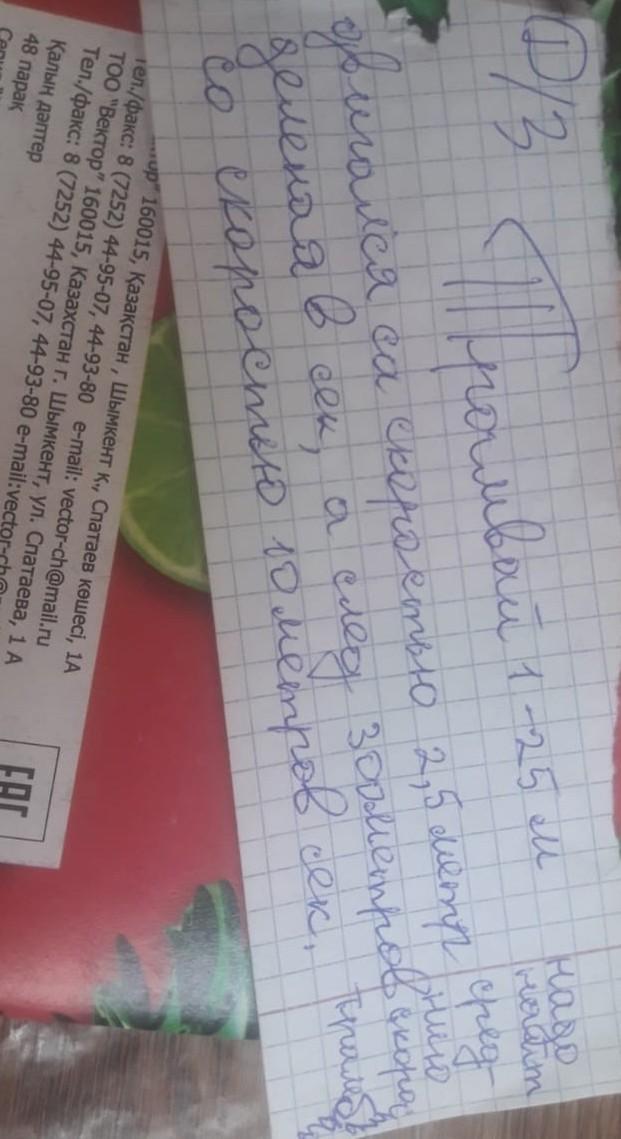 Д/З Тролмвай 1-25 м
двигался са скоростью 2,5 метр
деленая в сек, а след 300метров
со скоростью 10 метров сек.
надо
найти
сред
нию
скорос
трамв
160015, Қазақстан , Шымкент қ., Спатаев көшесі, 1А
Тел./факс: 8 (7252) 44-95-07, 44-93-80 e-mail: vector-ch@mail.ru
ТОО "Вектор" 160015, Казахстан г. Шымкент, ул. Спатаева, 1 А
Тел./факс: 8 (7252) 44-95-07, 44-93-80 e-mail:vector-ch@
Қалың дәптер
48 парақ
EAC